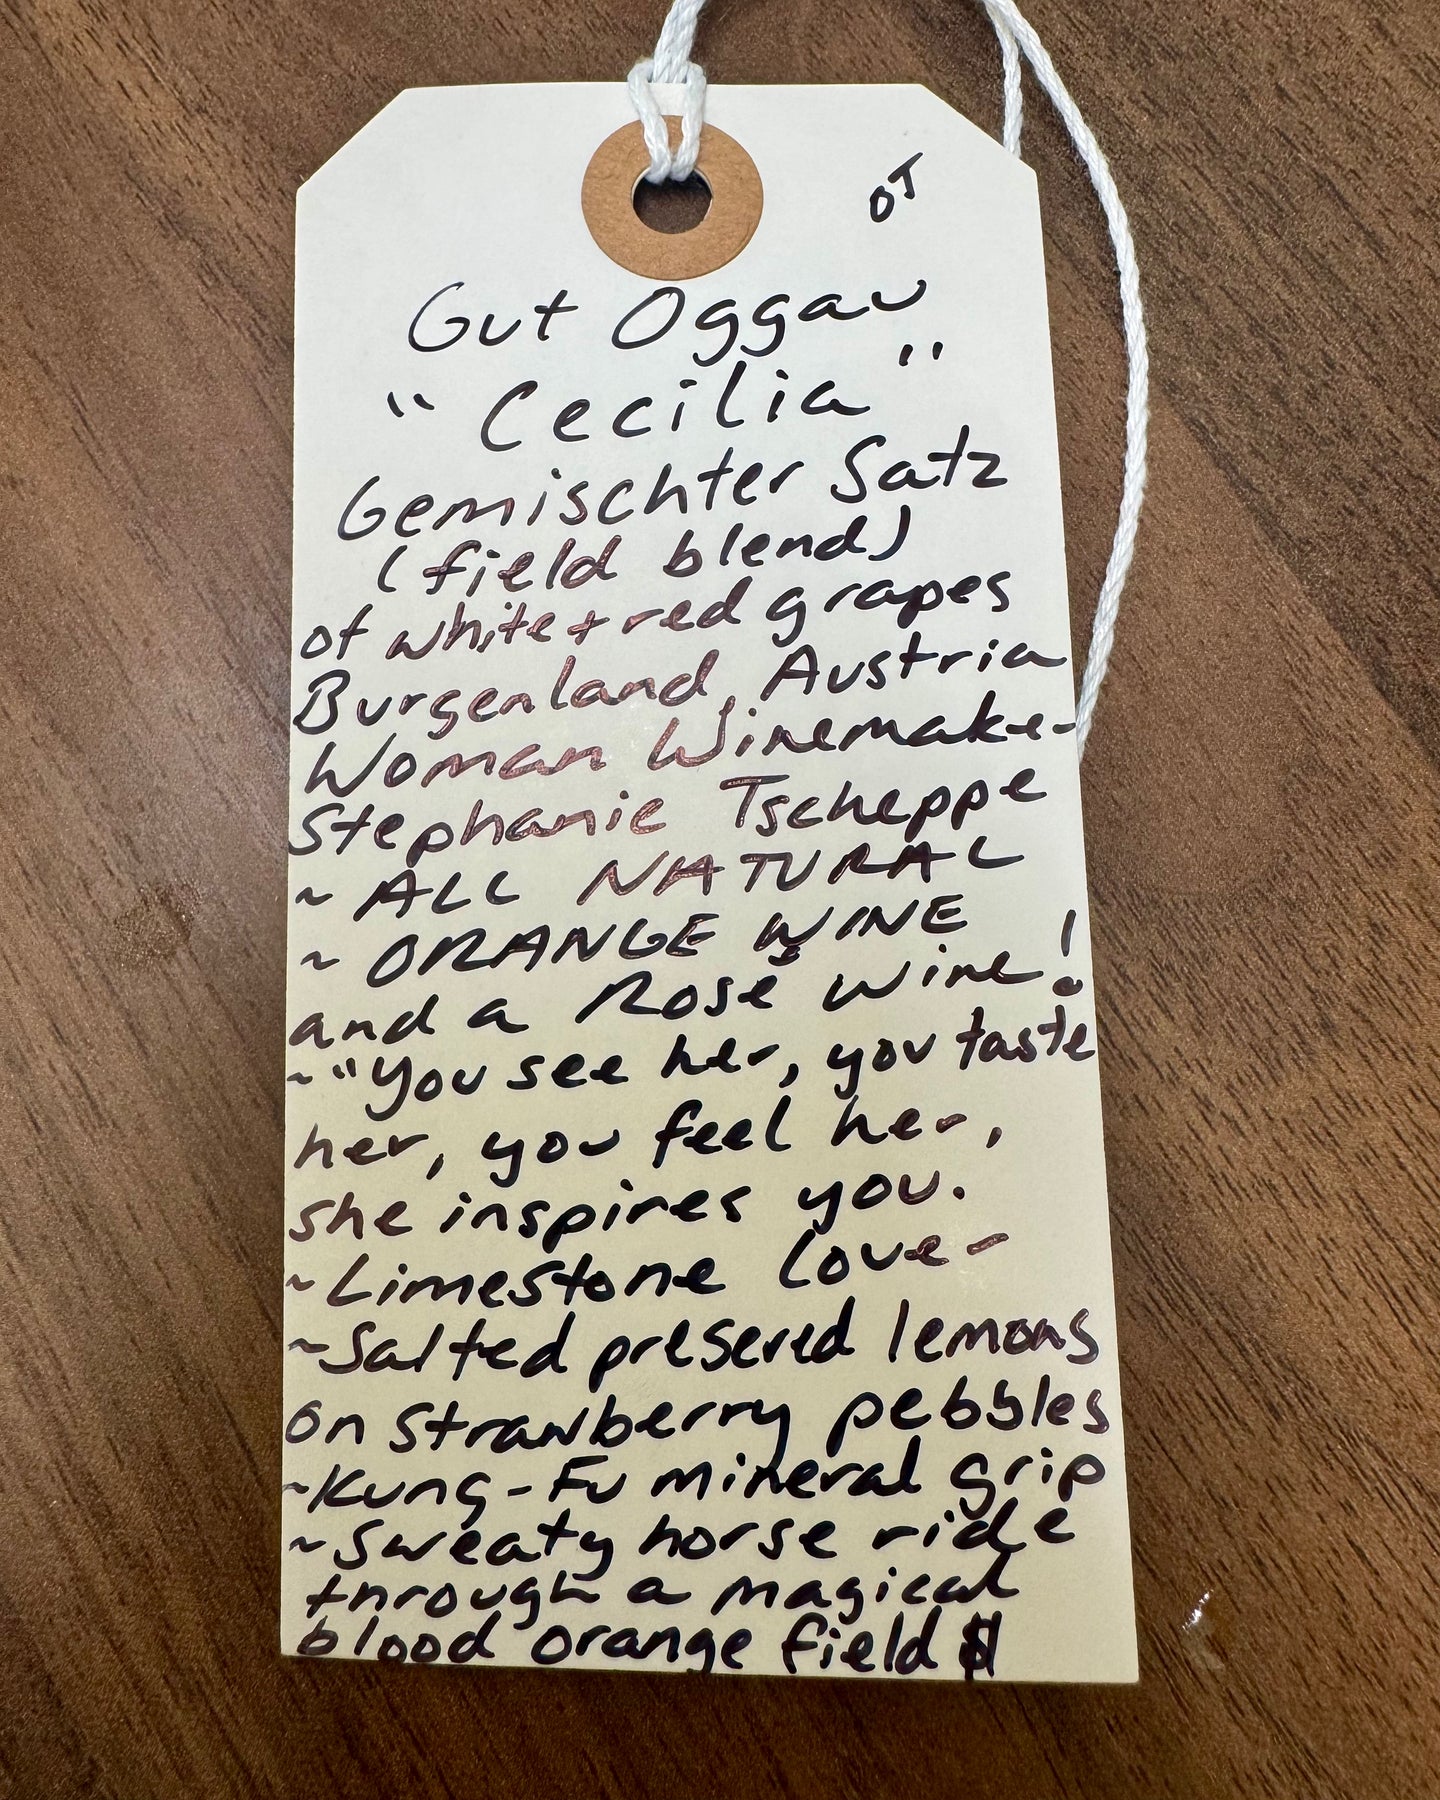 OT
Gut Oggau
"Cecilia"
Gemischter Satz
(field blend)
of white + red grapes
Burgenland, Austria
Woman Winemaker
Stephanie Tscheppe
~ ALL NATURAL
~ ORANGE WINE
and a Rosé wine!
~"You see her, you taste
her, you feel her,
she inspires you.
~Limestone Love-
~Salted presered lemons
on strawberry pebbles
~Kung-Fu mineral grip
~Sweaty horse ride
through a magical
blood orange field